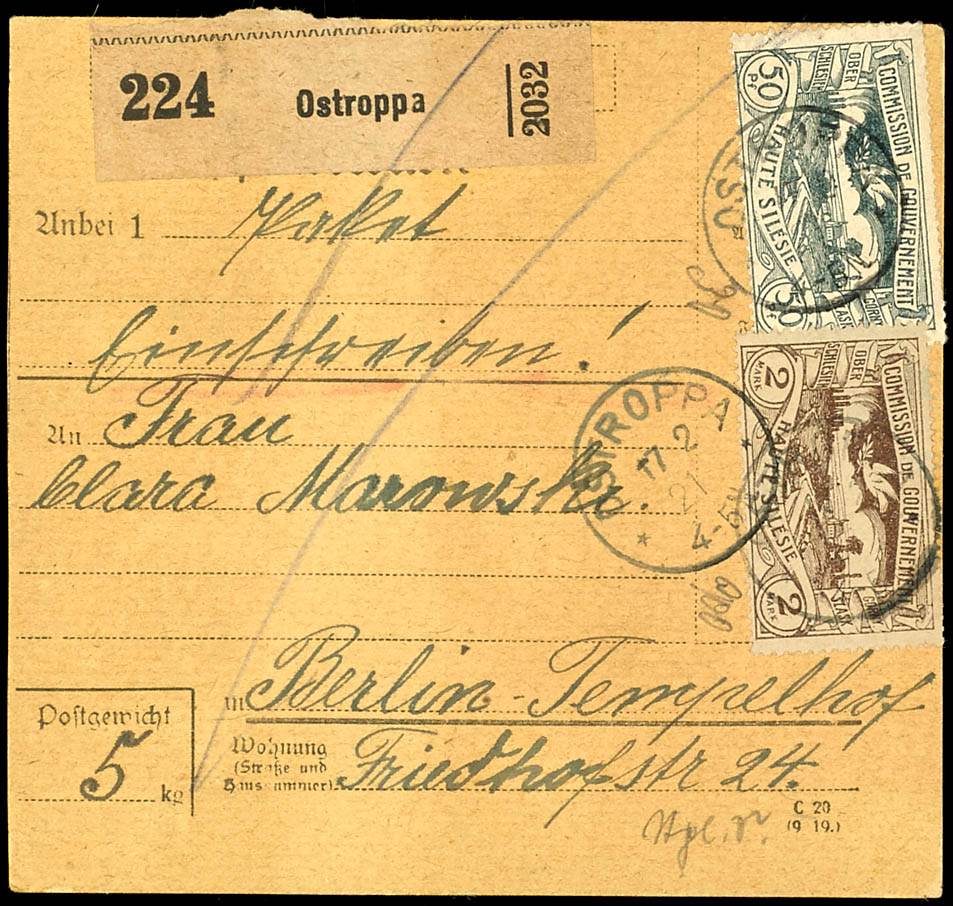 224 Ostroppa 2032
Anbei 1 Paket
Einschreiben!
An Frau
Clara Marowski.
in Berlin-Tempelhof
Wohnung
(Straße und
Hausnummer)
Friedhofstr 24.
Postgewicht
5 kg
C 20
(9 19.)
COMMISSION DE GOUVERNEMENT
HAUTE SILESIE
OBER
SCHLESIEN
50
PF
50
PF
COMMISSION DE GOUVERNEMENT
HAUTE SILESIE
OBER
SCHLESIEN
2
MARK
2
MARK
OSTROPPA
17 2
21
4-5